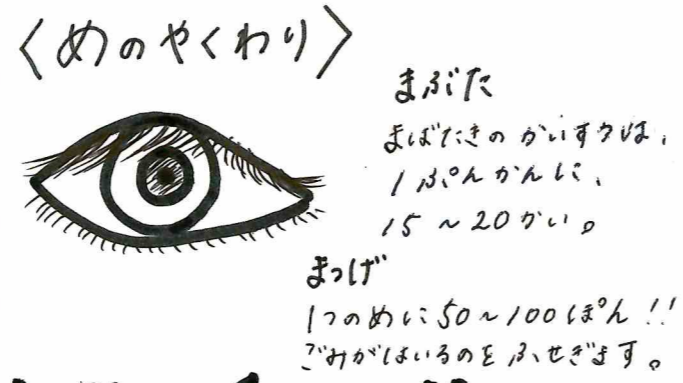 〈めのやくわり〉
まぶた
まばたきのかいすうは、
1ぷんかんに、
15~20かい。
まつげ
1つのめに50~100ぽん!!
ごみがはいるのをふせぎます。